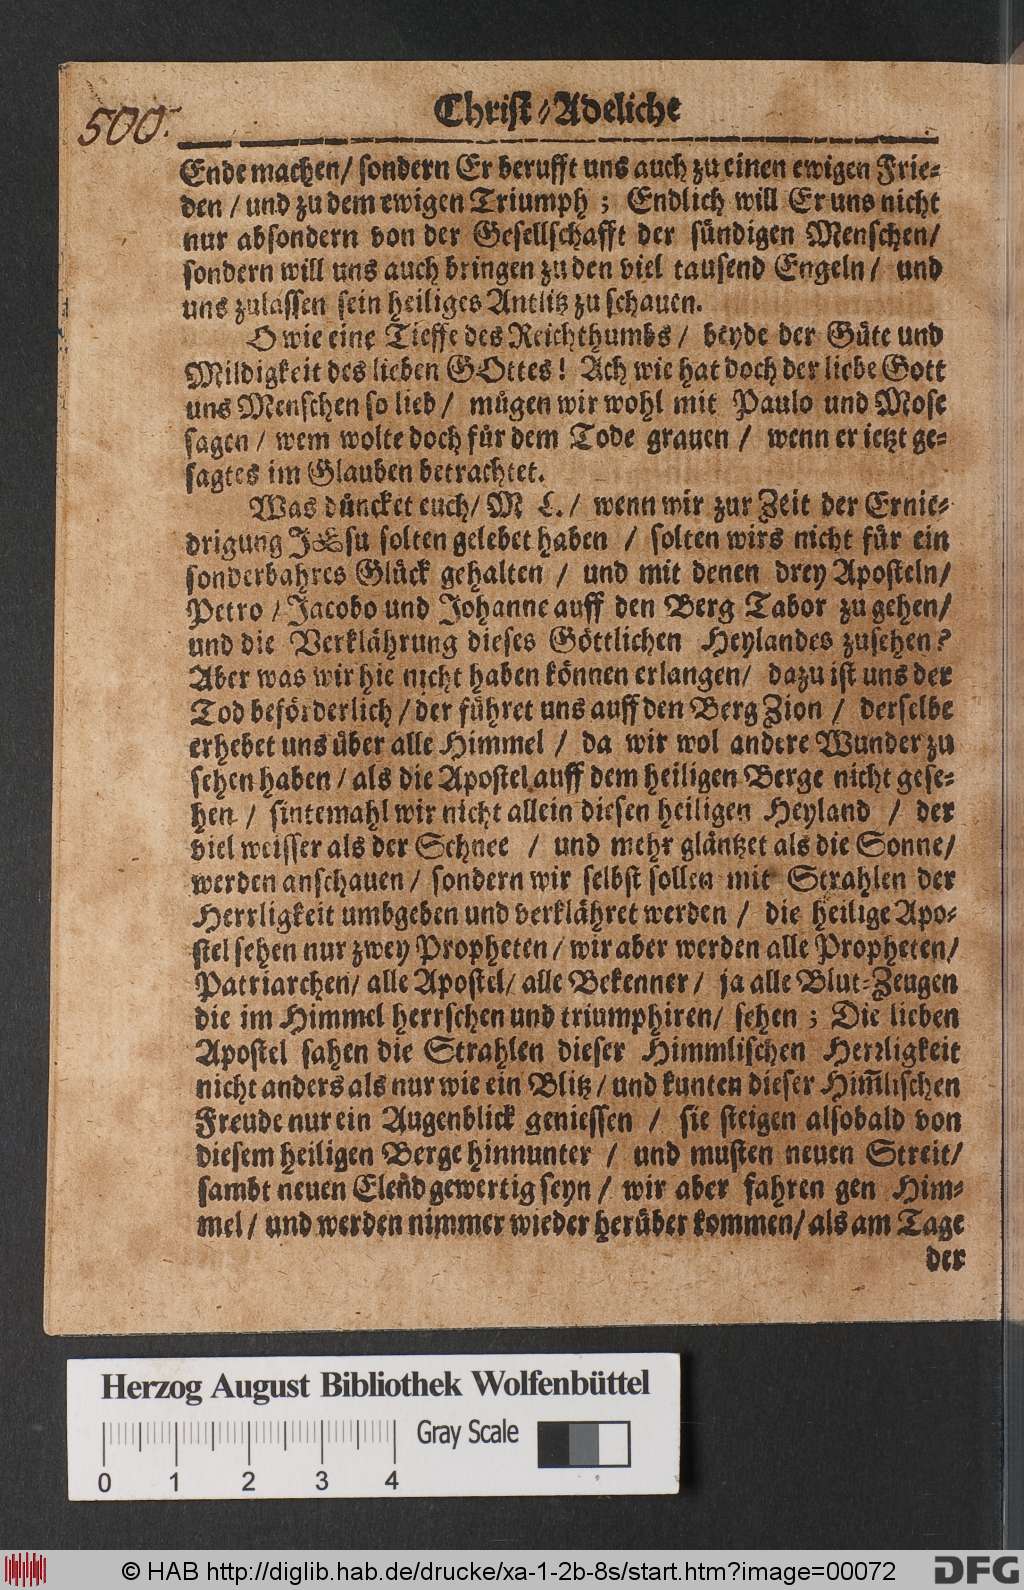 500.
Christ-Adeliche
Ende machen/ sondern Er berufft uns auch zu einen ewigen Frie-
den / und zu dem ewigen Triumph ; Endlich will Er uns nicht
nur absondern von der Gesellschafft der sündigen Menschen/
sondern will uns auch bringen zu den viel tausend Engeln / und
uns zulassen sein heiliges Antlitz zu schauen.
O wie eine Tieffe des Reichthumbs / beyde der Güte und
Mildigkeit des lieben GOttes! Ach wie hat doch der liebe Gott
uns Menschen so lieb / mügen wir wohl mit Paulo und Mose
sagen / wem wolte doch für dem Tode grauen / wenn er ietzt ge-
sagtes im Glauben betrachtet.
Was düncket euch/ M L. / wenn wir zur Zeit der Ernie-
drigung JEsu solten gelebet haben / solten wirs nicht für ein
sonderbahres Glück gehalten / und mit denen drey Aposteln/
Petro / Jacobo und Johanne auff den Berg Tabor zu gehen/
und die Verklährung dieses Göttlichen Heylandes zusehen?
Aber was wir hie nicht haben können erlangen/ dazu ist uns der
Tod beförderlich / der führet uns auff den Berg Zion / derselbe
erhebet uns über alle Himmel / da wir wol andere Wunder zu
sehen haben / als die Apostel auff dem heiligen Berge nicht gese-
hen / sintemahl wir nicht allein diesen heiligen Heyland / der
viel weisser als der Schnee / und mehr gläntzet als die Sonne/
werden anschauen / sondern wir selbst sollen mit Strahlen der
Herrligkeit umbgeben und verklähret werden / die heilige Apo-
stel sehen nur zwey Propheten / wir aber werden alle Propheten/
Patriarchen/ alle Apostel/ alle Bekenner / ja alle Blut-Zeugen
die im Himmel herrschen und triumphiren/ sehen ; Die lieben
Apostel sahen die Strahlen dieser Himmlischen Herrligkeit
nicht anders als nur wie ein Blitz / und kunten dieser Him̃lischen
Freude nur ein Augenblick geniessen / sie steigen alsobald von
diesem heiligen Berge hinnunter / und musten neuen Streit/
sambt neuen Elend gewertig seyn / wir aber fahren gen Him-
mel / und werden nimmer wieder herüber kommen/ als am Tage
der
Herzog August Bibliothek Wolfenbüttel
Gray Scale
0 1 2 3 4
© HAB http://diglib.hab.de/drucke/xa-1-2b-8s/start.htm?image=00072
DFG